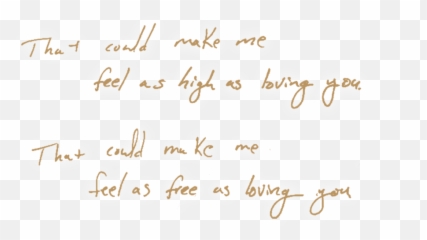 That could make me
feel as high as loving you.
That could make me
feel as free as loving you